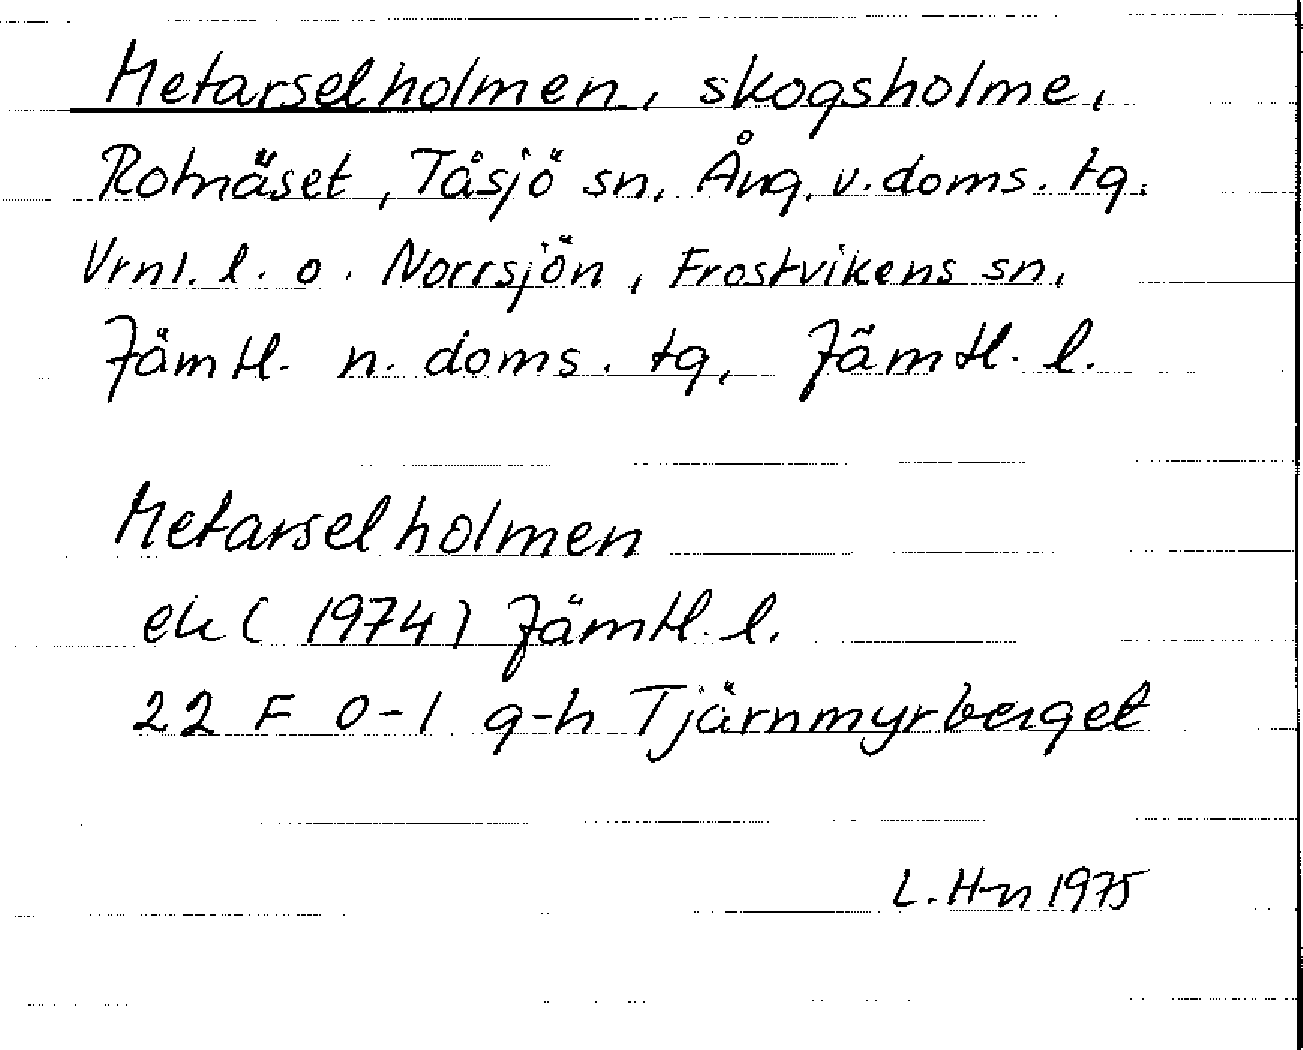 Metarselholmen, skogsholme,
Rotnäset, Tåsjö sn, Ång. v. doms. tg.
Vrnl. l. o. Norrsjön, Frostvikens sn,
Jämtl. n. doms. tg, Jämtl. l.
Metarselholmen
ek (1974) Jämtl. l.
22 F 0-1 g-h Tjärnmyrberget
L. H-n 1975